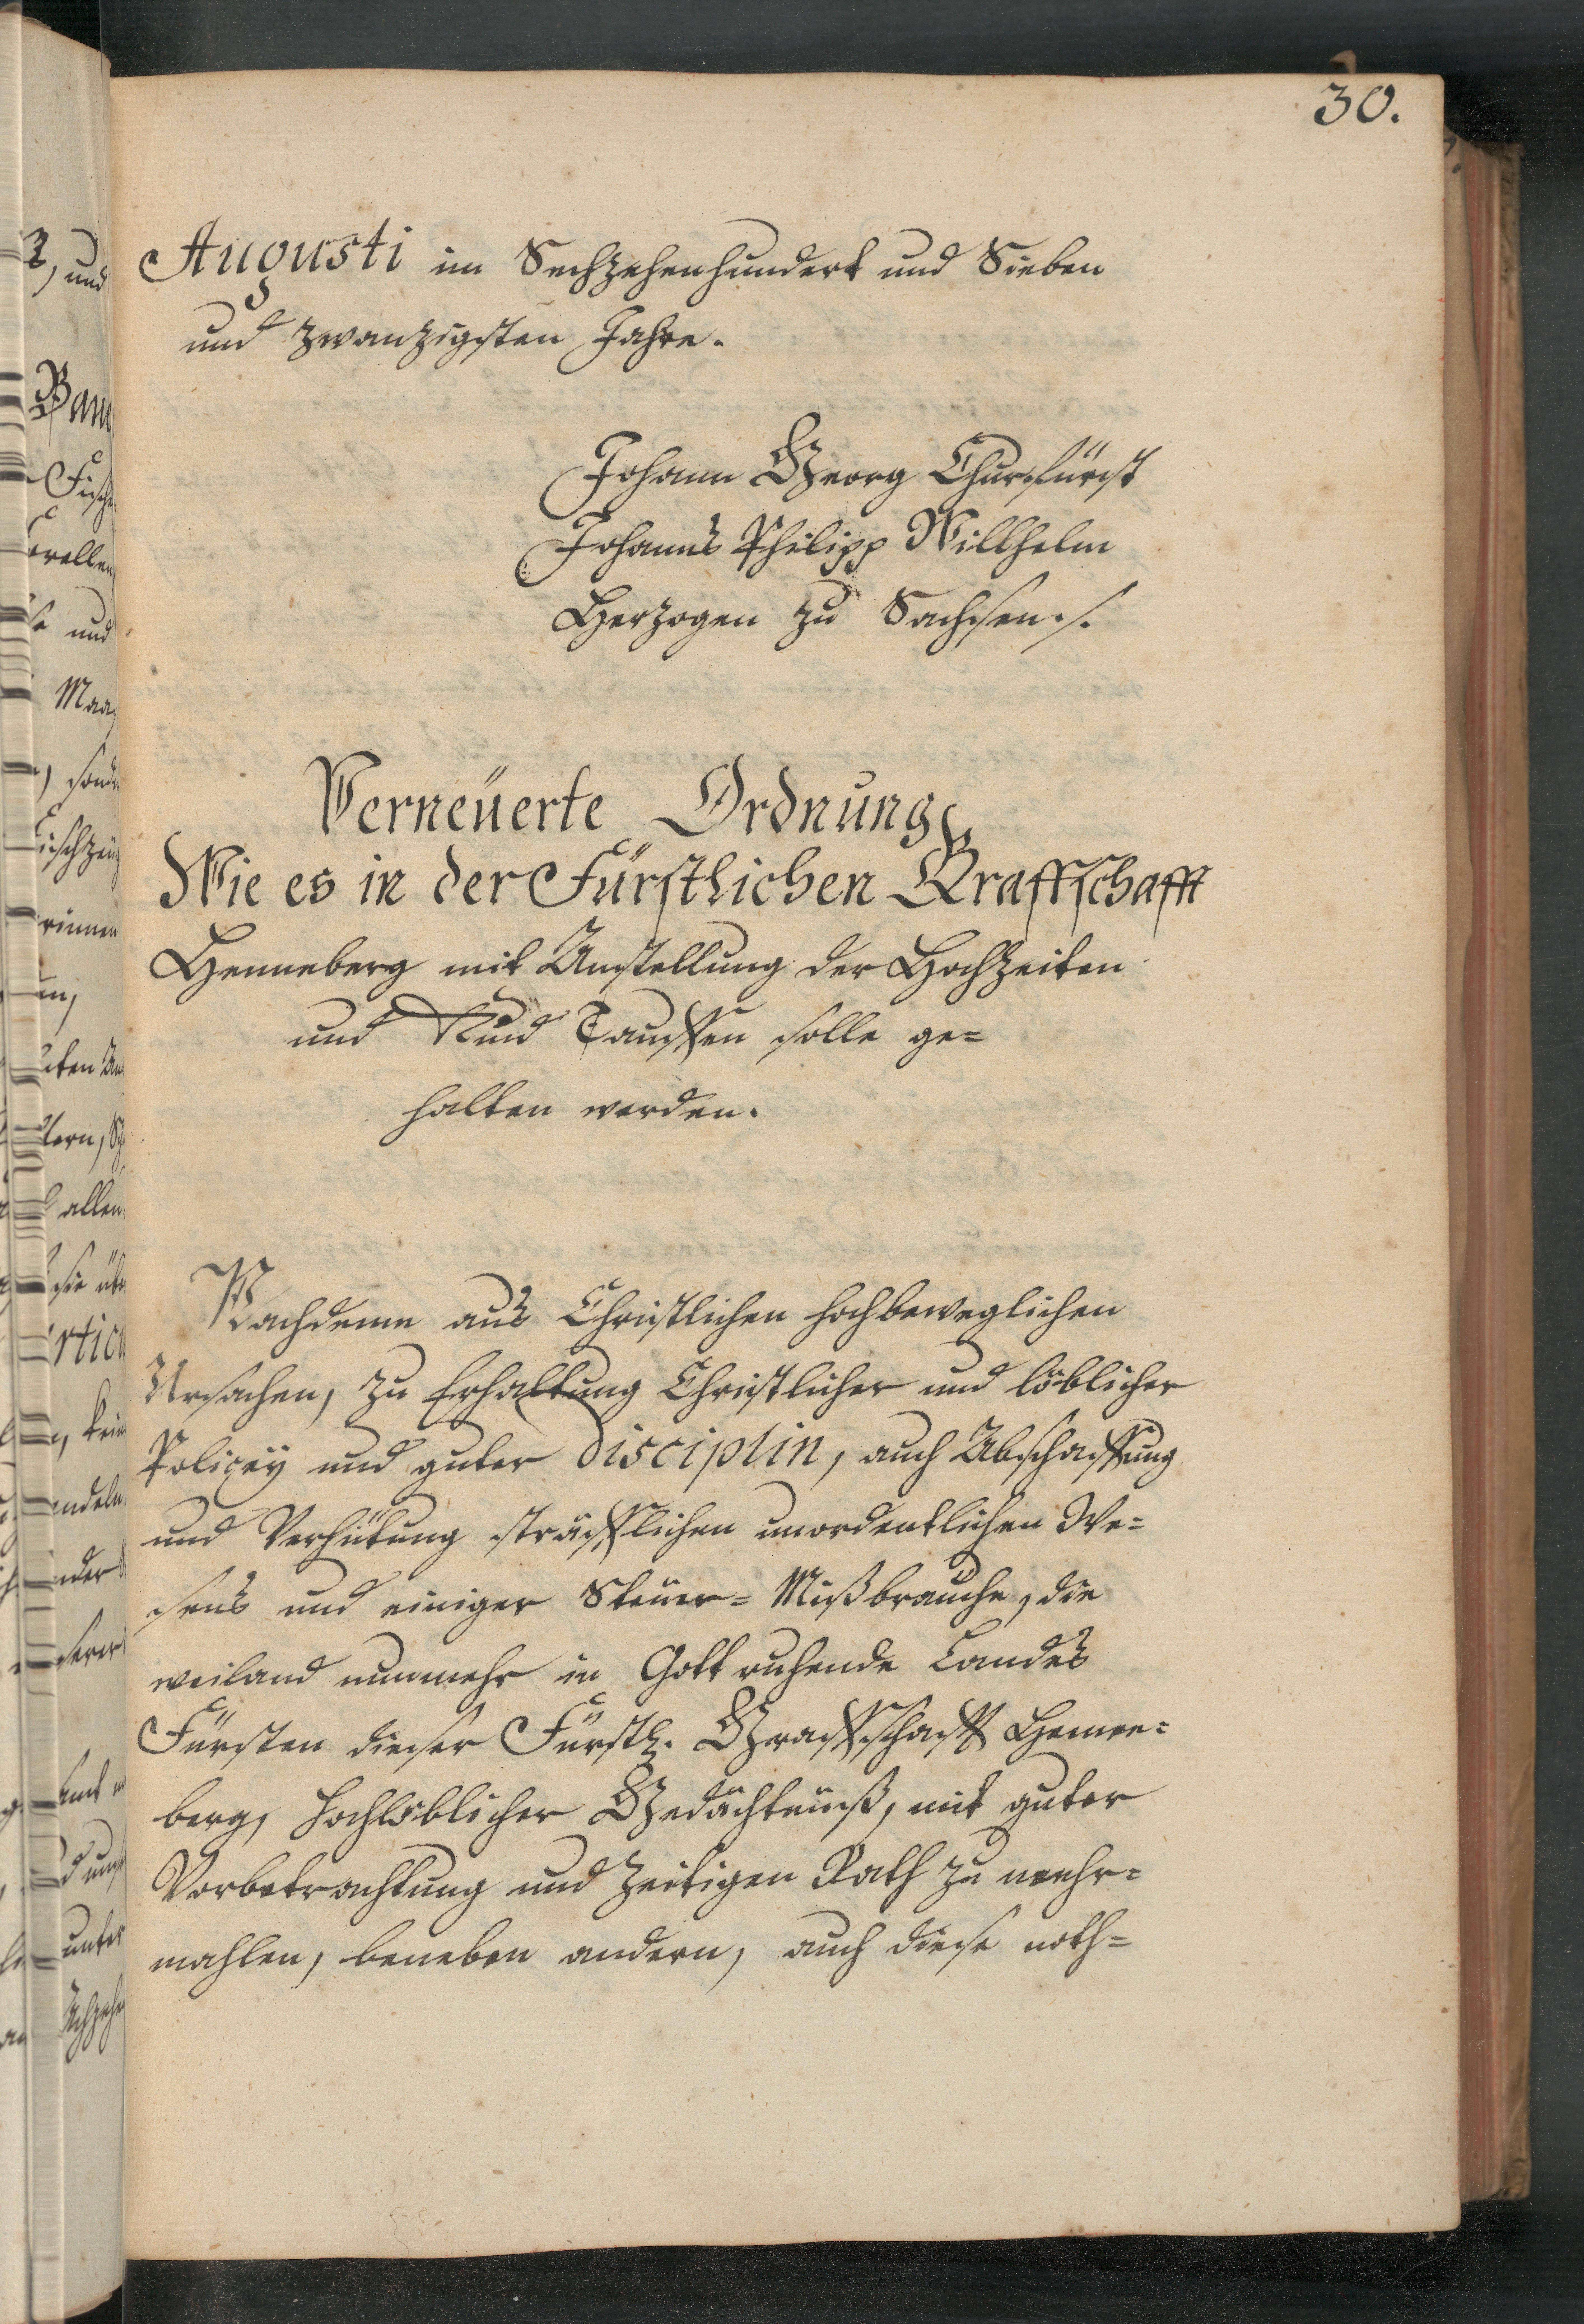 30.
Augusti im Sechzehenhundert und Sieben
und zwanzigsten Jahre.
Johann Georg Churfürst
Johanns Philipp Willhelm
Herzogen zu Sachsen./.
Verneüerte Ordnung,
Wie es in der Fürstlichen Graffschafft
Henneberg mit Anstellung der Hochzeiten
und Kind Tauffen solle ge=
halten werden.
Nachdeme aus Christlichen hochbeweglichen
Ursachen, zu Erhaltung Christlicher und löblicher
Policey und guter disciplin, auch Abschaffung
und Verhütung sträfflichen unordentlichen We=
sens und einiger Steuer=Mißbrauche, die
weiland nunmehr in Gott ruhende Landes
Fürsten dieser Fürstl. Graffschafft Henne=
berg, hochlöblicher Gedächtnüß, mit guter
Vorbetrachtung und zeitigen Rath zu mehr=
mahlen, beneben andern, auch diese noth=